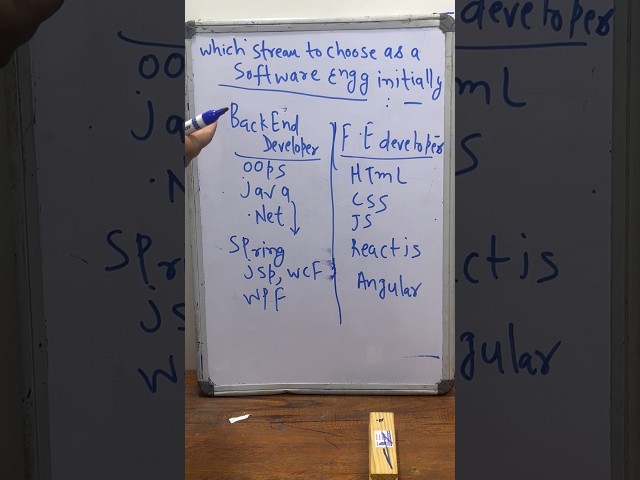 which stream to choose as a
Software Engg initially
BackEnd
Developer
OOPS
Java
.Net
Spring
JSP, WCF
WPF
F.E developer
HTML
CSS
JS
Reactjs
Angular